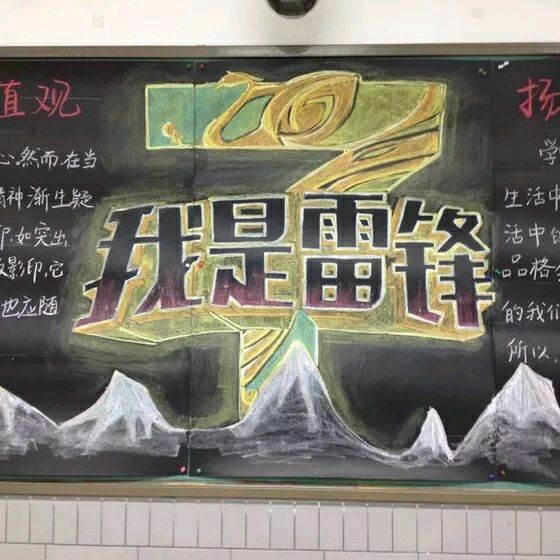 值观
心.然而,在当
精神渐生疑
印.如突出
影印.它
也应随
我是雷锋
扬
学
生活中
活中的
品格
的我们
所以.